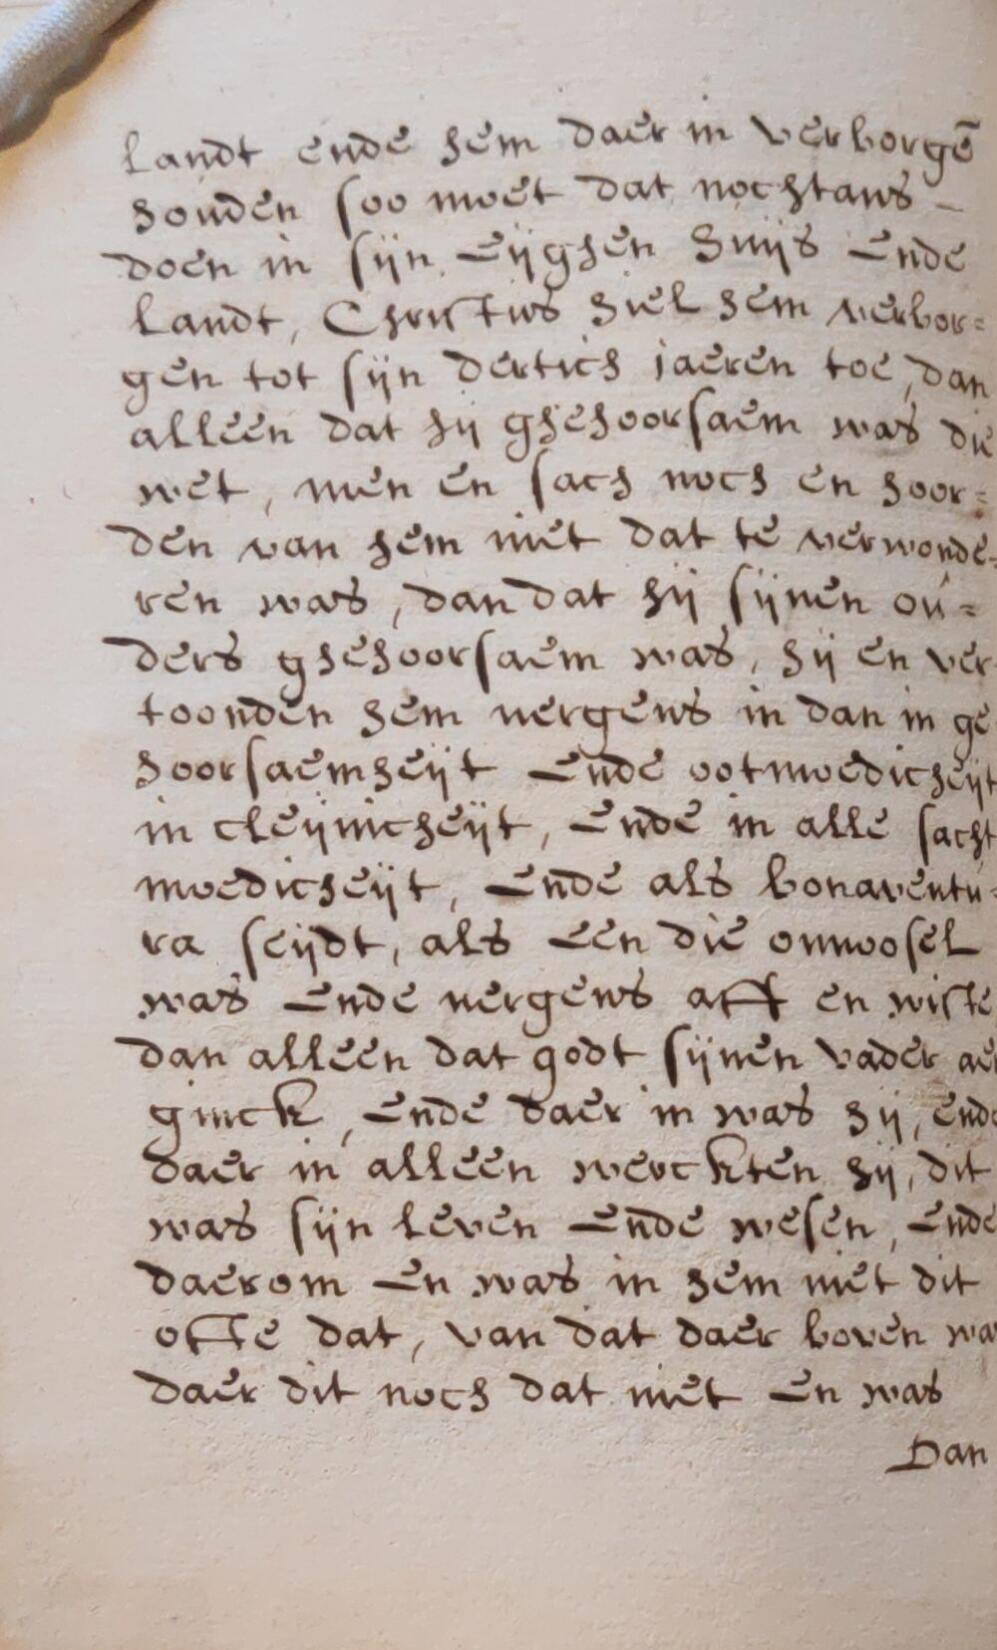 landt ende hem daer in verborgē
houden soo moet dat nochtans –
doen in sijn eijghen huijs ende
landt, Christus hiel hem verbor=
gen tot sijn dertich iaeren toe, dan
alleen dat hij ghehoorsaem was die
wet, men en sach noch en hoor=
den van hem niet dat te verwonde=
ren was, dan dat hij sijnen ou=
ders ghehoorsaem was, hij en ver
toonden hem nergens in dan in ge
hoorsaemheijt ende ootmoedicheijt
in cleijnicheijt, ende in alle sacht
moedicheijt, ende als bonaventu=
ra seijdt, als een die onnosel
was ende nergens aff en wiste
dan alleen dat godt sijnen vader ae
ginck, ende daer in was hij, ende
daer in alleen werckten hij, dit
was sijn leven ende wesen, ende
daerom en was in hem niet dit
offte dat, van dat daer boven wa
daer dit noch dat niet en was
Dan